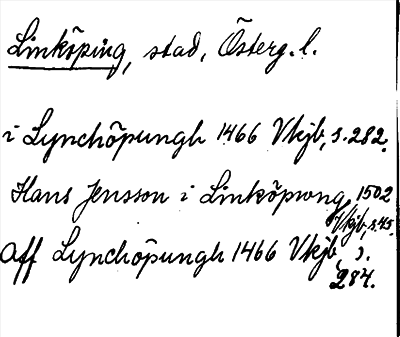 Linköping, stad, Österg. l.
i Lynchöpungh 1466 Vkjb, s. 282.
Hans Jensson i Linköpwng, 1502
Vkjb, s. 45.
Aff Lynchöpungh 1466 Vkjb, s.
284.